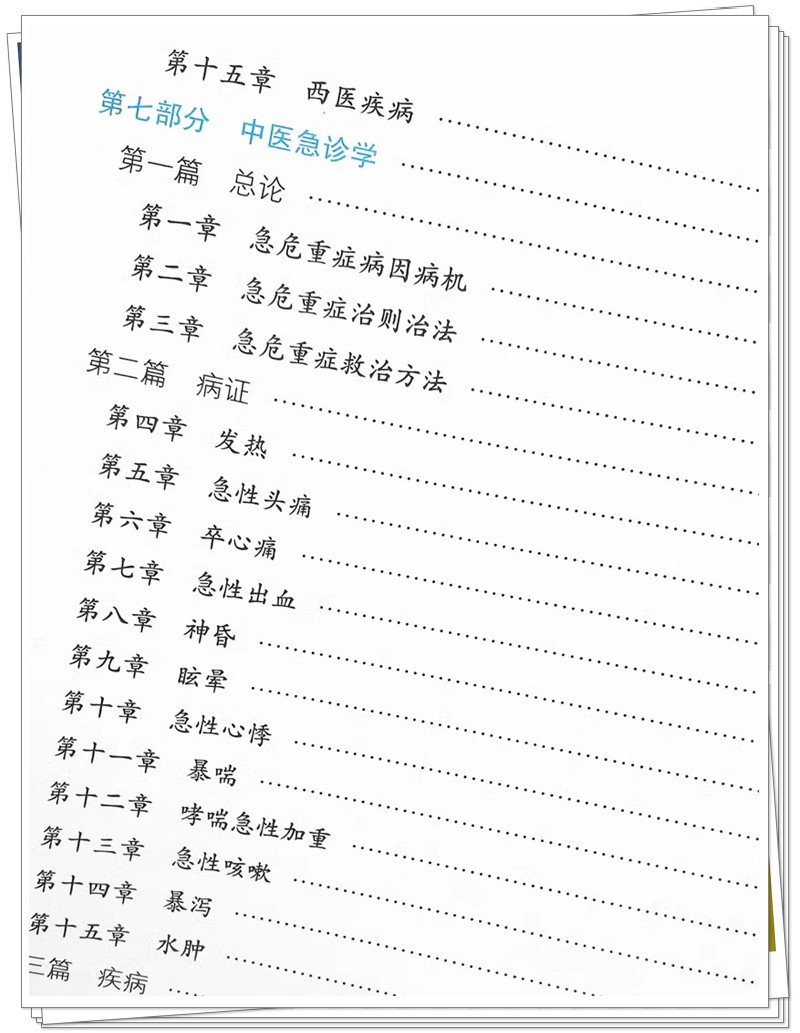 第十五章 西医疾病
第七部分 中医急诊学
第一篇 总论
第一章 急危重症病因病机
第二章 急危重症治则治法
第三章 急危重症救治方法
第二篇 病证
第四章 发热
第五章 急性头痛
第六章 卒心痛
第七章 急性出血
第八章 神昏
第九章 眩晕
第十章 急性心悸
第十一章 暴喘
第十二章 哮喘急性加重
第十三章 急性咳嗽
第十四章 暴泻
第十五章 水肿
三篇 疾病